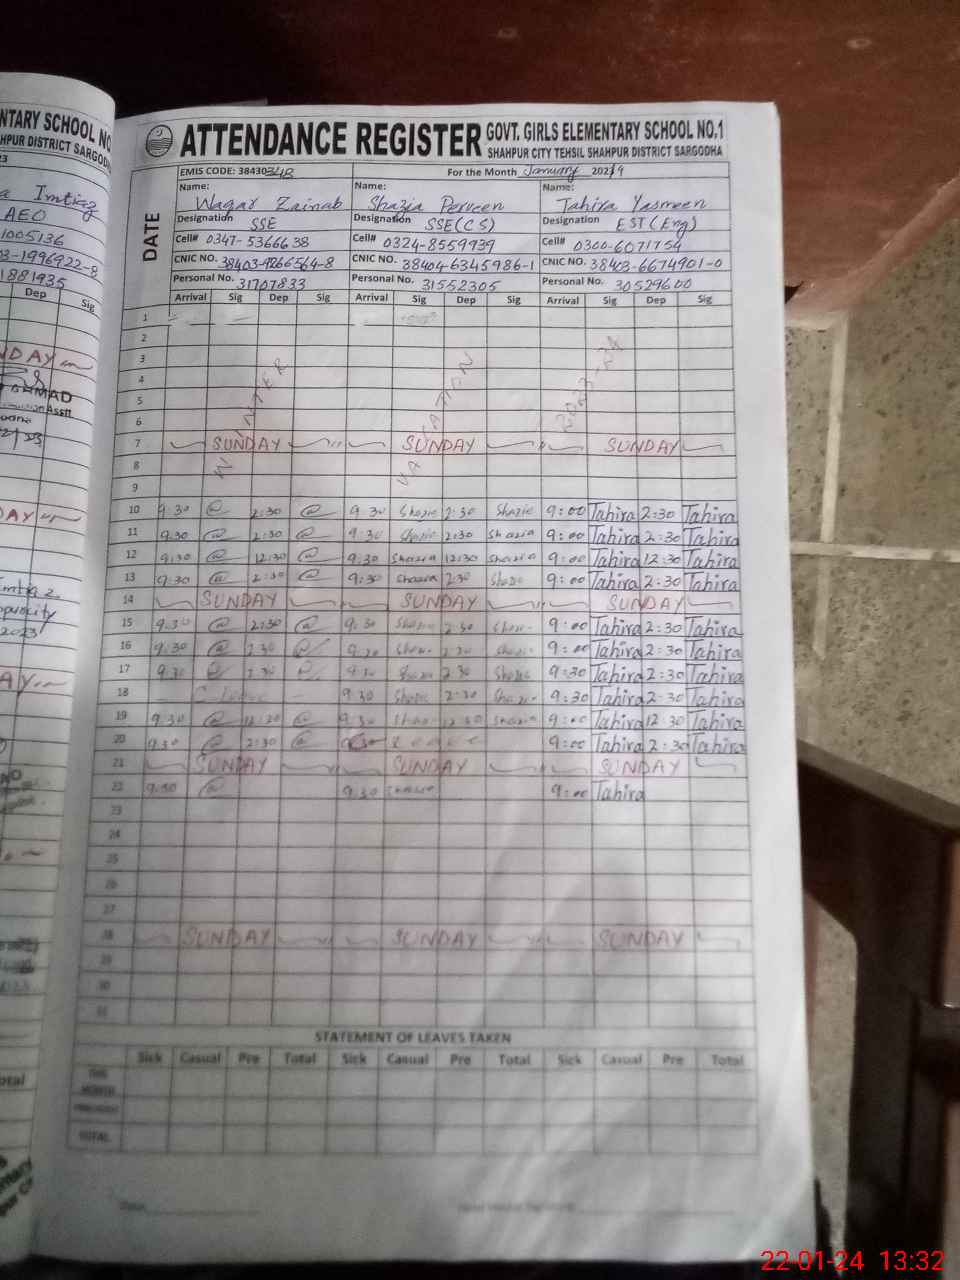 NTARY SCHOOL NO
HPUR DISTRICT SARGODHA
a Imtiaz
AEO
1005136
03-1996922-8
1881935
Dep Sig
NDAY
AHMAD
AY
ATTENDANCE REGISTER GOVT. GIRLS ELEMENTARY SCHOOL NO.1
SHAHPUR CITY TEHSIL SHAHPUR DISTRICT SARGODHA
EMIS CODE: 38430348 For the Month January 2024
DATE
Name: Name: Name:
Waqar Zainab Shazia Perveen Tahira Yasmeen
Designation SSE Designation SSE(CS) Designation EST(Eng)
Cell# 0347-5366638 Cell# 0324-8559939 Cell# 0300-6071754
CNIC NO. 38403-9266564-8 CNIC NO. 38404-6345986-1 CNIC NO. 38403-6674901-0
Personal No. 31707833 Personal No. 31552305 Personal No. 30529600
Arrival Sig Dep Sig Arrival Sig Dep Sig Arrival Sig Dep Sig
1
2
3
4
5
6
WINTER VACATION 2023-24
7 SUNDAY SUNDAY SUNDAY
8
9
10 9:30 2:30 9:30 Shazia 2:30 Shazia 9:00 Tahira 2:30 Tahira
11 9:30 2:30 9:30 Shazia 2:30 Shazia 9:00 Tahira 2:30 Tahira
12 9:30 12:30 9:30 Shazia 12:30 Shazia 9:00 Tahira 12:30 Tahira
13 9:30 2:30 9:30 Shazia 2:30 Shazia 9:00 Tahira 2:30 Tahira
14 SUNDAY SUNDAY SUNDAY
15 9:30 2:30 9:30 Shazia 2:30 Shazia 9:00 Tahira 2:30 Tahira
16 9:30 2:30 9:30 Shazia 2:30 Shazia 9:00 Tahira 2:30 Tahira
17 9:30 2:30 9:30 Shazia 2:30 Shazia 9:30 Tahira 2:30 Tahira
18 C. Leave 9:30 Shazia 2:30 Shazia 9:30 Tahira 2:30 Tahira
19 9:30 12:30 9:30 Shazia 12:30 Shazia 9:00 Tahira 12:30 Tahira
20 9:30 2:30 Leave 9:00 Tahira 2:30 Tahira
21 SUNDAY SUNDAY SUNDAY
22 9:30 9:30 Shazia 9:00 Tahira
23
24
25
26
27
28 SUNDAY SUNDAY SUNDAY
29
30
31
STATEMENT OF LEAVES TAKEN
Sick Casual Pre Total Sick Casual Pre Total Sick Casual Pre Total
THIS MONTH
TOTAL
22-01-24 13:32